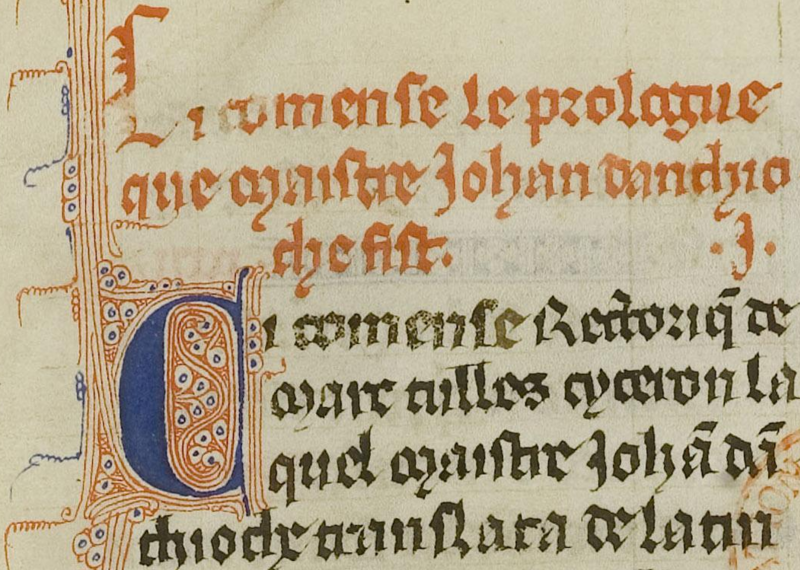 Ci comense le prologue
que maistre Johan danthio
che fist. .J.
Ci comense Rectoriq̄ de
marc tulles cyceron la
quel maistre Johā dā
thioche translata de latin